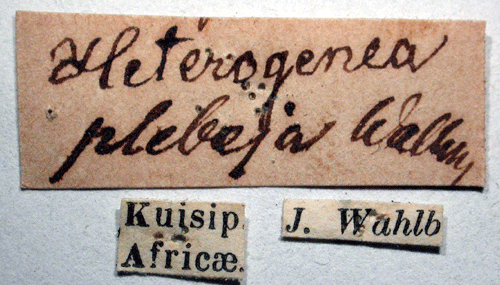 Heterogenea
plebeja Wallengr
Kuisip
Africæ.
J. Wahlb